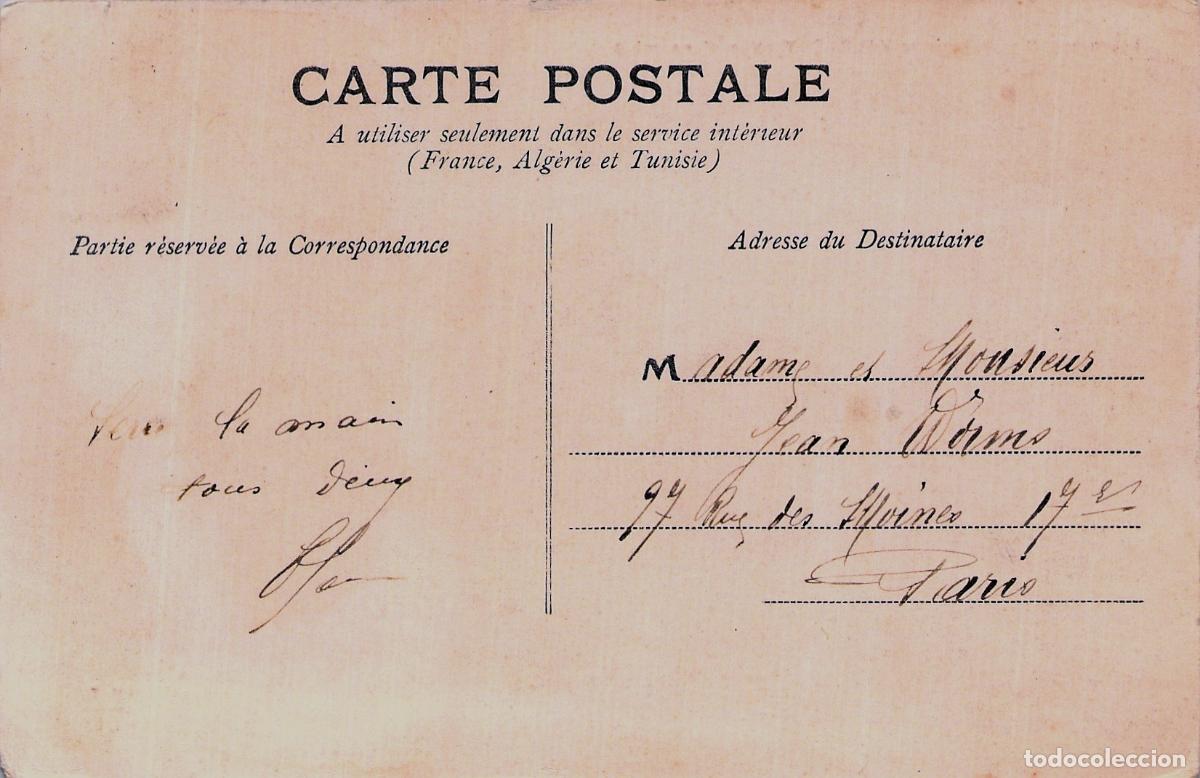 CARTE POSTALE
A utiliser seulement dans le service intérieur
(France, Algérie et Tunisie)
Partie réservée à la Correspondance
la main
tous deux
Adresse du Destinataire
Madame et Monsieur
Jean Worms
97 Rue des Moines 17e
Paris
todocoleccion